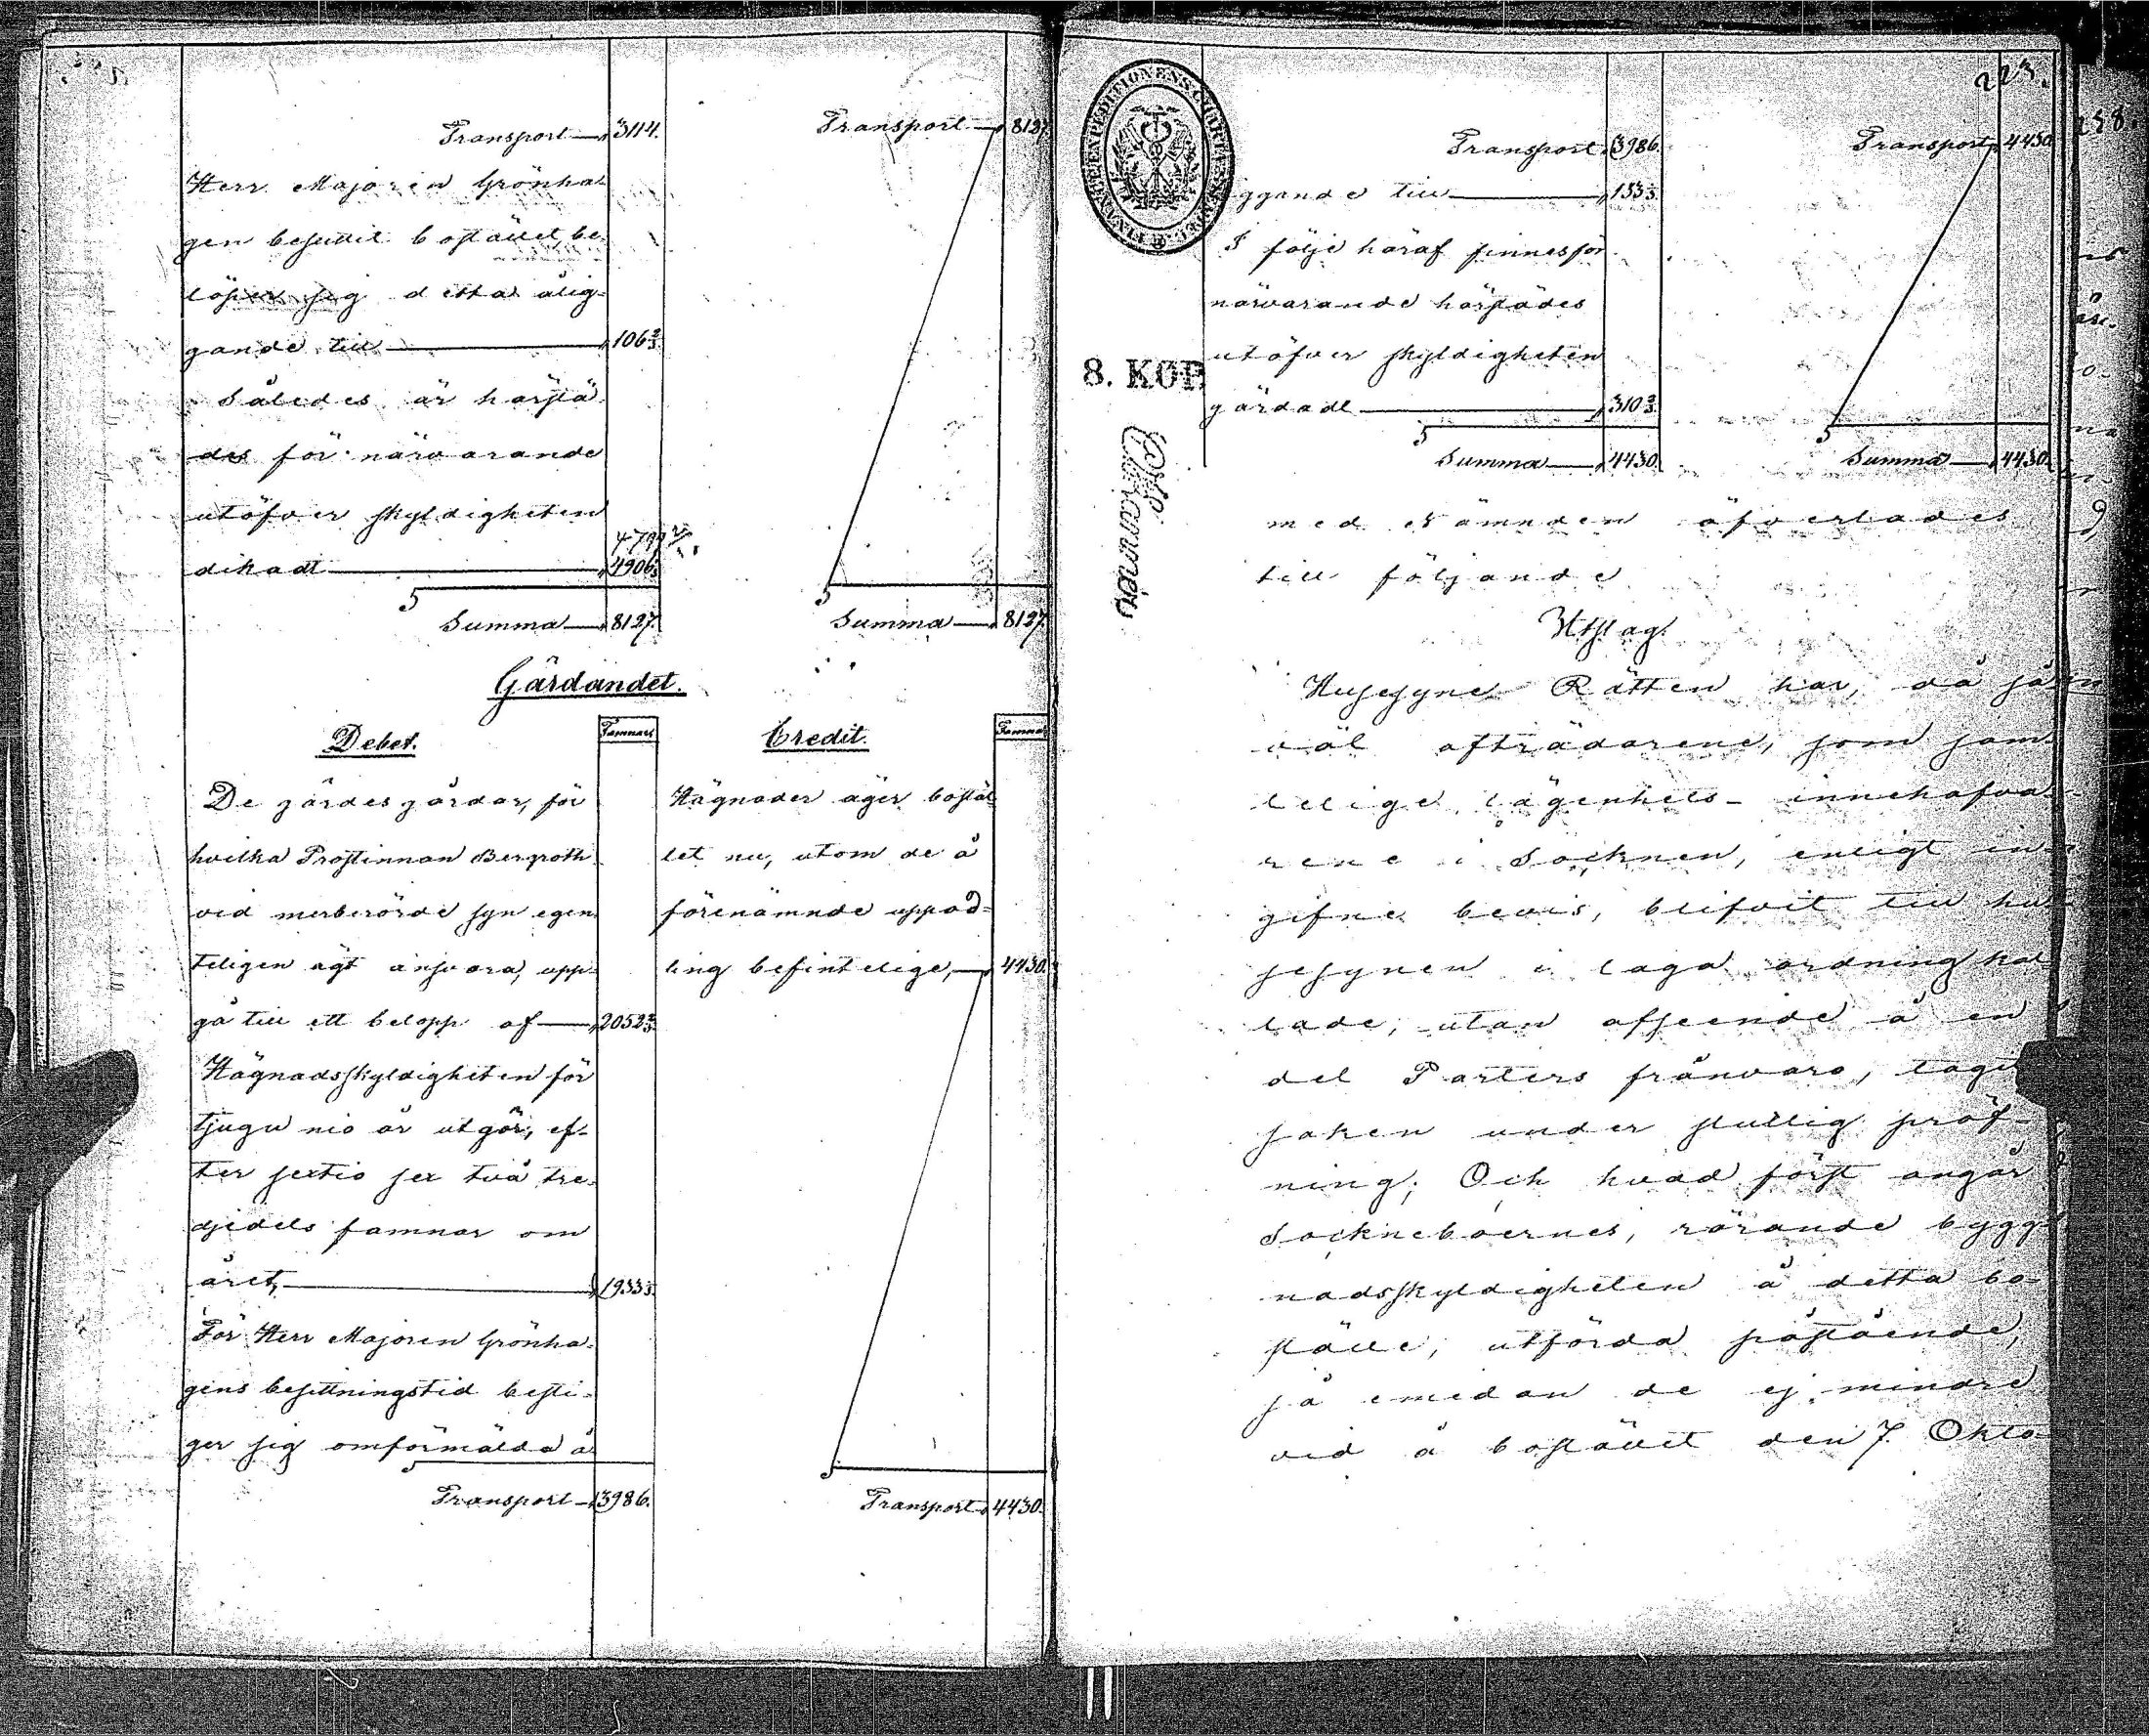 Transport 3114.
Herr Majoren Grönha-
gen besuttit bostället, be-
löper sig detta ålig-
gande till 106 2/3
Således är härstä-
des för närvarande
utöfver skyldigheten
dikadt 4906 1/3
Summa 8127.
Transport 8127.
Summa 8127.
Gärdandet.
Debet. Famnar
De gärdesgårdar, för
hvilka Prostinnan Bergroth
vid merberörde syn egen-
teligen ägt ansvara, upp-
gå till ett belopp af 2052 2/3
Hägnadsskyldigheten för
tjugu nio år utgör, ef-
ter sextio sex två tre-
djedels famnar om
året, 1933 1/3
För Herr Majoren Grönha-
gens besittningstid besti-
ger sig omförmälda å-
Transport 3986.
Credit. Famnar
Hägnader äger bostäl-
let nu, utom de å
förenämnde uppod-
ling befintelige, 4430.
Transport 4430.
223.
FINANCE EXPEDITIONENS CHARTÆ
8. KOP.
Transport 3986.
liggande till 133 1/3
I följe häraf finnes för
närvarande härstädes
utöfver skyldigheten
gärdadt 310 2/3
Summa 4430.
Transport 4430.
Summa 4430.
med Nämnden öfverlades
till följande
Utslag.
Husesyne Rätten har, då så
väl afträdarene, som sam-
telige lägenhets-innehafva-
rene i Socknen, enligt in-
gifne bevis, blifvit till hu-
sesynen i laga ordning kal-
lade, utan afseende å en
del Parters frånvaro, tagit
saken under slutlig pröf-
ning; Och hvad först angår
Sockneboernes, rörande bygg-
nadsskyldigheten å detta bo-
ställe, utförda påstående,
så emedan de ej mindre
vid å bostället den 7. Okto-
258.